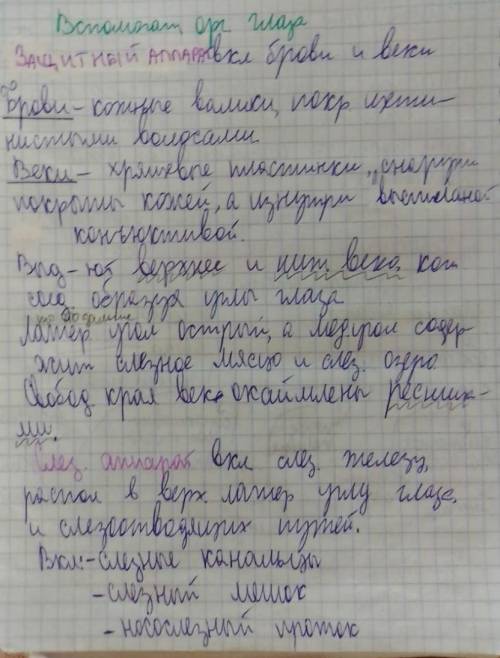 Вспомогат. орг глаза
Защитный аппарат вкл брови и веки
Брови - кожные валики, покр. щети-
нистыми волосами
Веки - хрящевые пластинки, снаружи
покрыты кожей, а изнутри выстланой
конъюктивой.
Выд-ют верхнее и ниж. века, кот
соед. образуя углы глаза
Латер угол острый, а мед угол содер
жит слезное мясцо и слез. озеро
Свобод края век окаймлены ресниц-
ми.
Слез. аппарат вкл слез. железу,
распол в верх. латер углу глаза,
и слезоотводящих путей.
Вкл: - слезные канальцы
- слезный мешок
- носослезный проток